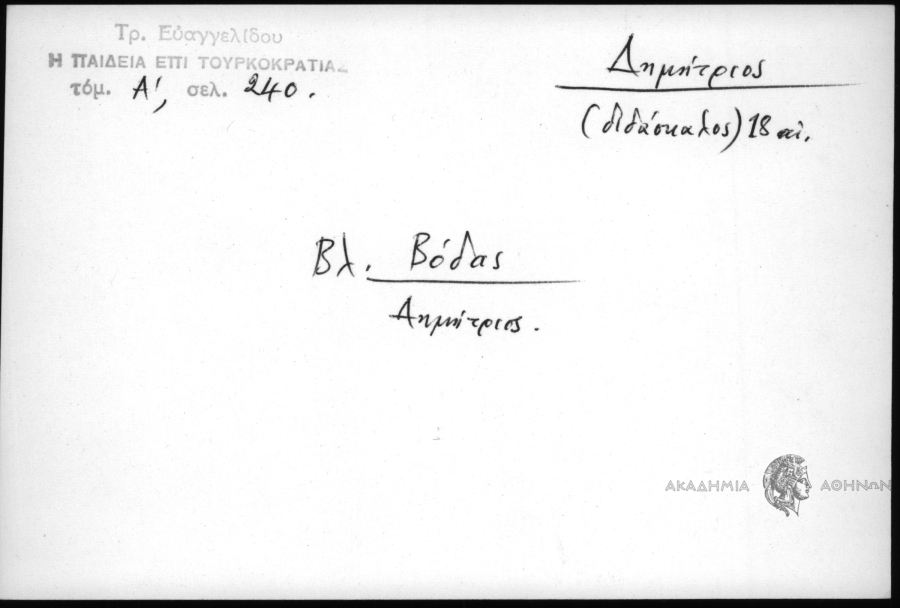 Τρ. Εὐαγγελίδου
Η ΠΑΙΔΕΙΑ ΕΠΙ ΤΟΥΡΚΟΚΡΑΤΙΑΣ
τόμ. Α', σελ. 240.
Δημήτριος
(διδάσκαλος) 18 αἰ.
Βλ. Βόδας
Δημήτριος.
ΑΚΑΔΗΜΙΑ ΑΘΗΝΩΝ